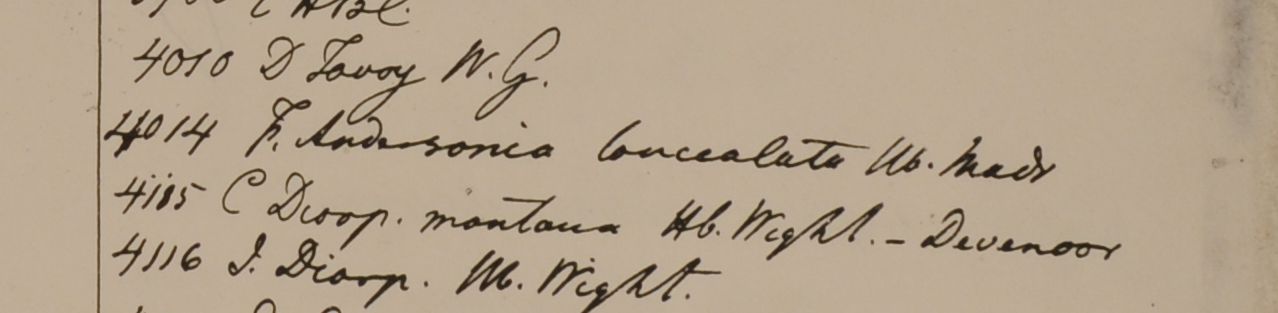 Hbl.
4010 D Tavoy W. G.
4014 F. Andersonia lanceolata Hb. Madr
4115 C Diosp. montana Hb. Wight. - Devenoor
4116 I. Diosp. Hb. Wight.